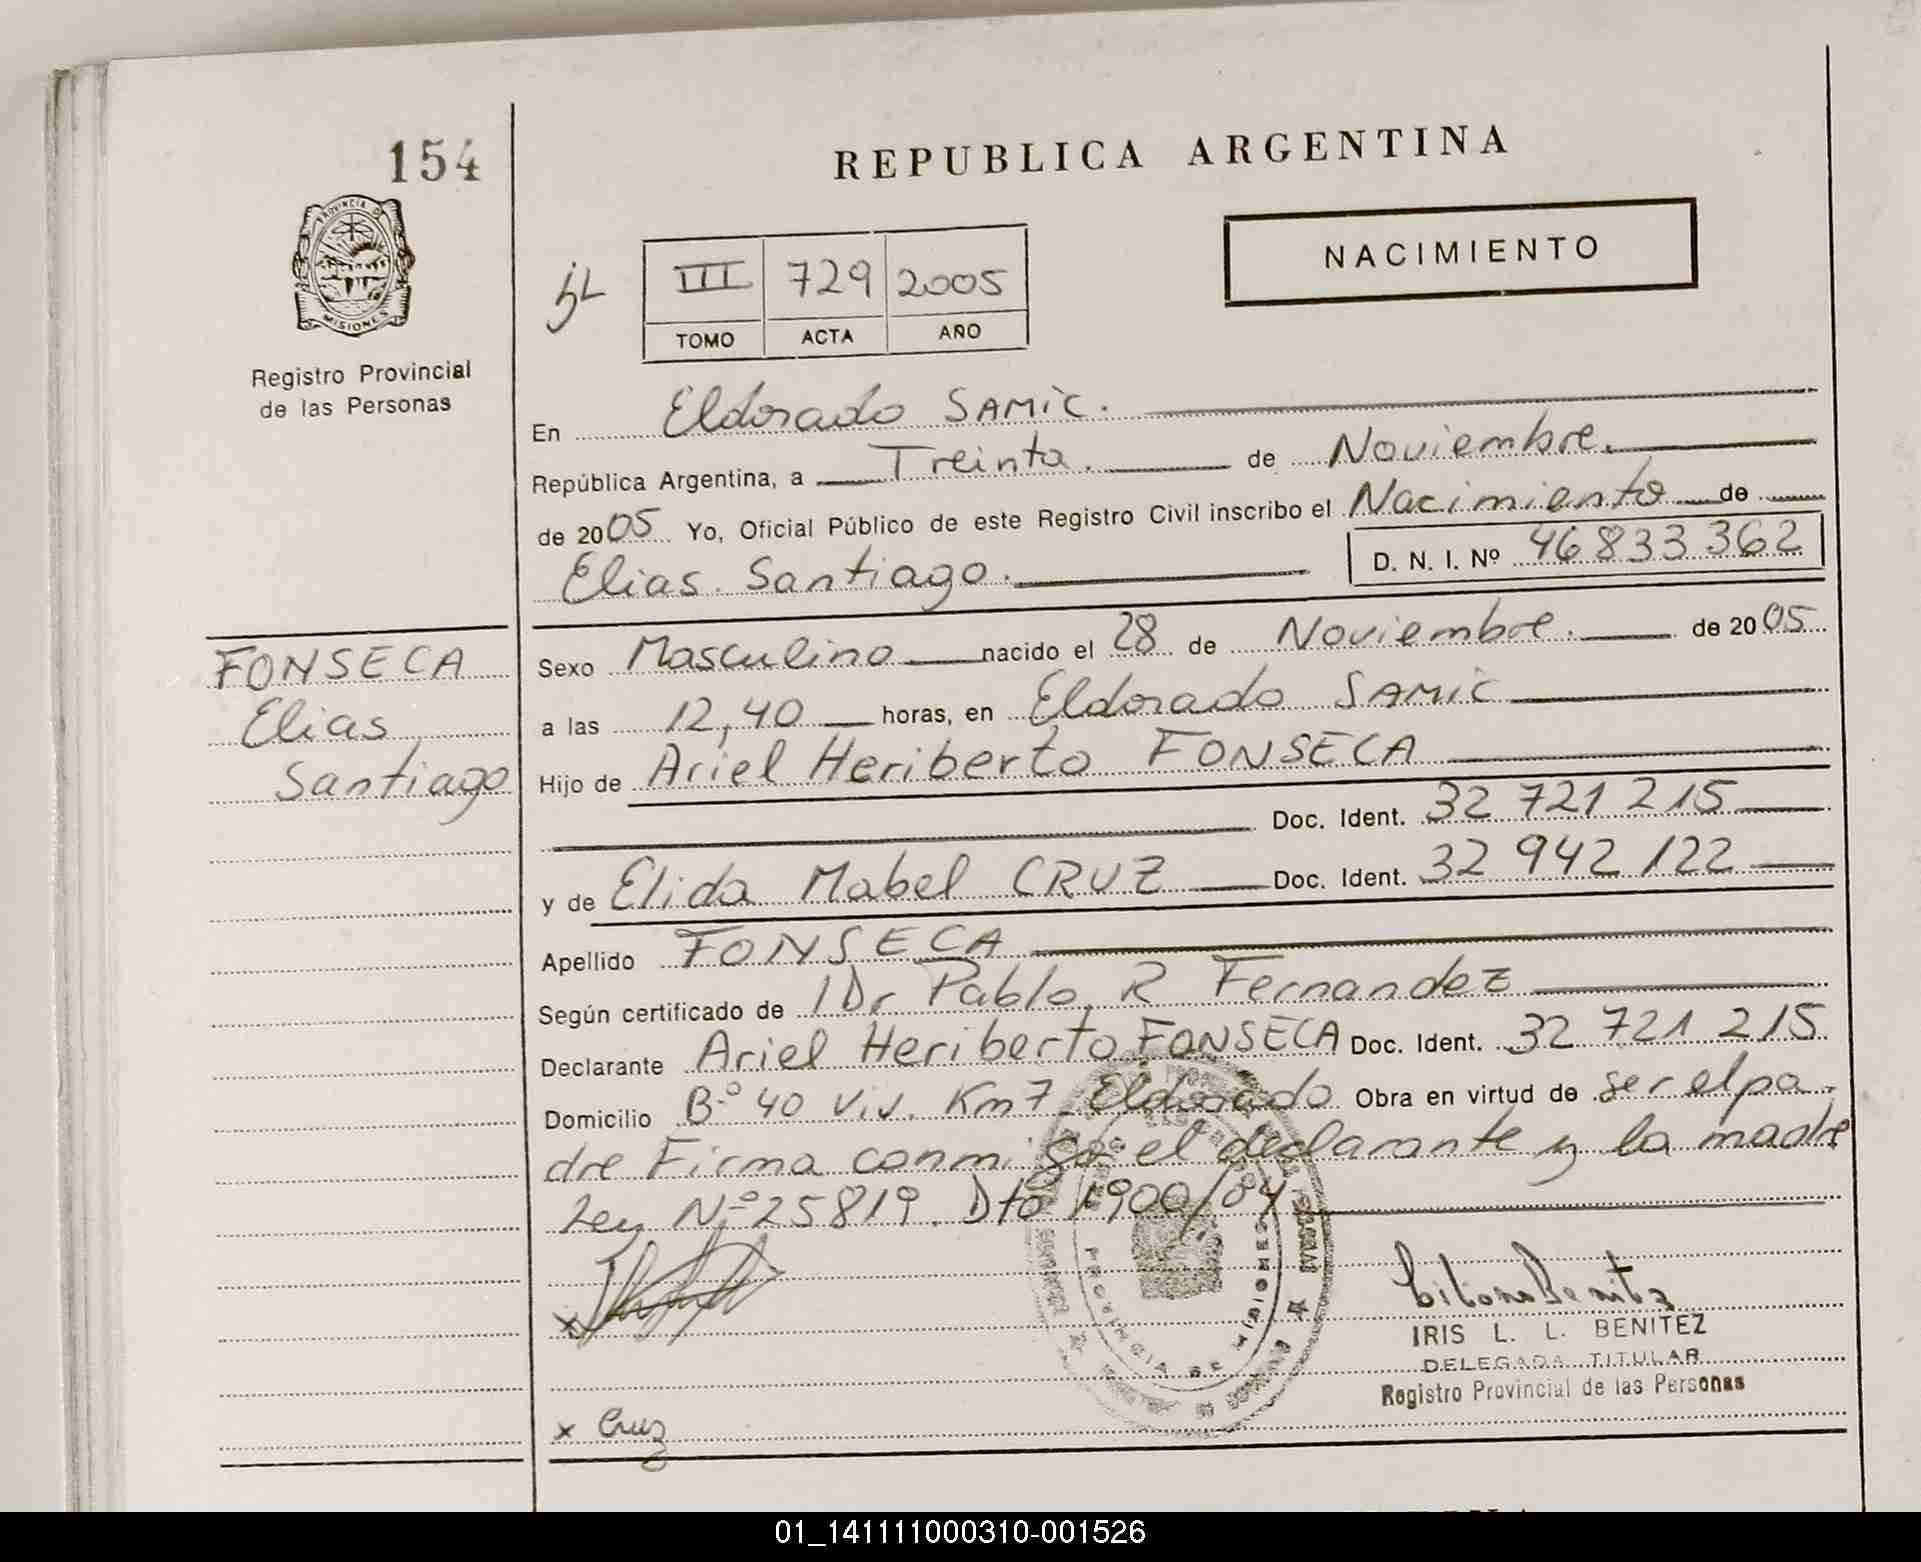 154
REPUBLICA ARGENTINA
PROVINCIA DE
MISIONES
Registro Provincial
de las Personas
NACIMIENTO
III 729 2005
TOMO ACTA AÑO
En Eldorado SAMIC.
República Argentina, a Treinta. de Noviembre.
de 2005 Yo, Oficial Público de este Registro Civil inscribo el Nacimiento de
Elias Santiago. D. N. I. Nº 46833362
FONSECA
Elias
Santiago
Sexo Masculino nacido el 28 de Noviembre. de 2005
a las 12,40 horas, en Eldorado SAMIC
Hijo de Ariel Heriberto FONSECA
Doc. Ident. 32 721 215
y de Elida Mabel CRUZ Doc. Ident. 32 942 122
Apellido FONSECA
Según certificado de Dr Pablo R Fernandez
Declarante Ariel Heriberto FONSECA Doc. Ident. 32 721 215
Domicilio Bº 40 Viv. Km 7 Eldorado Obra en virtud de ser el pa
dre Firma conmigo el declarante y la madre
Ley Nº 25819. Dto 1900/04
PROVINCIA DE MISIONES
IRIS L. L. BENITEZ
DELEGADA TITULAR
Registro Provincial de las Personas
x Cruz
01_141111000310-001526